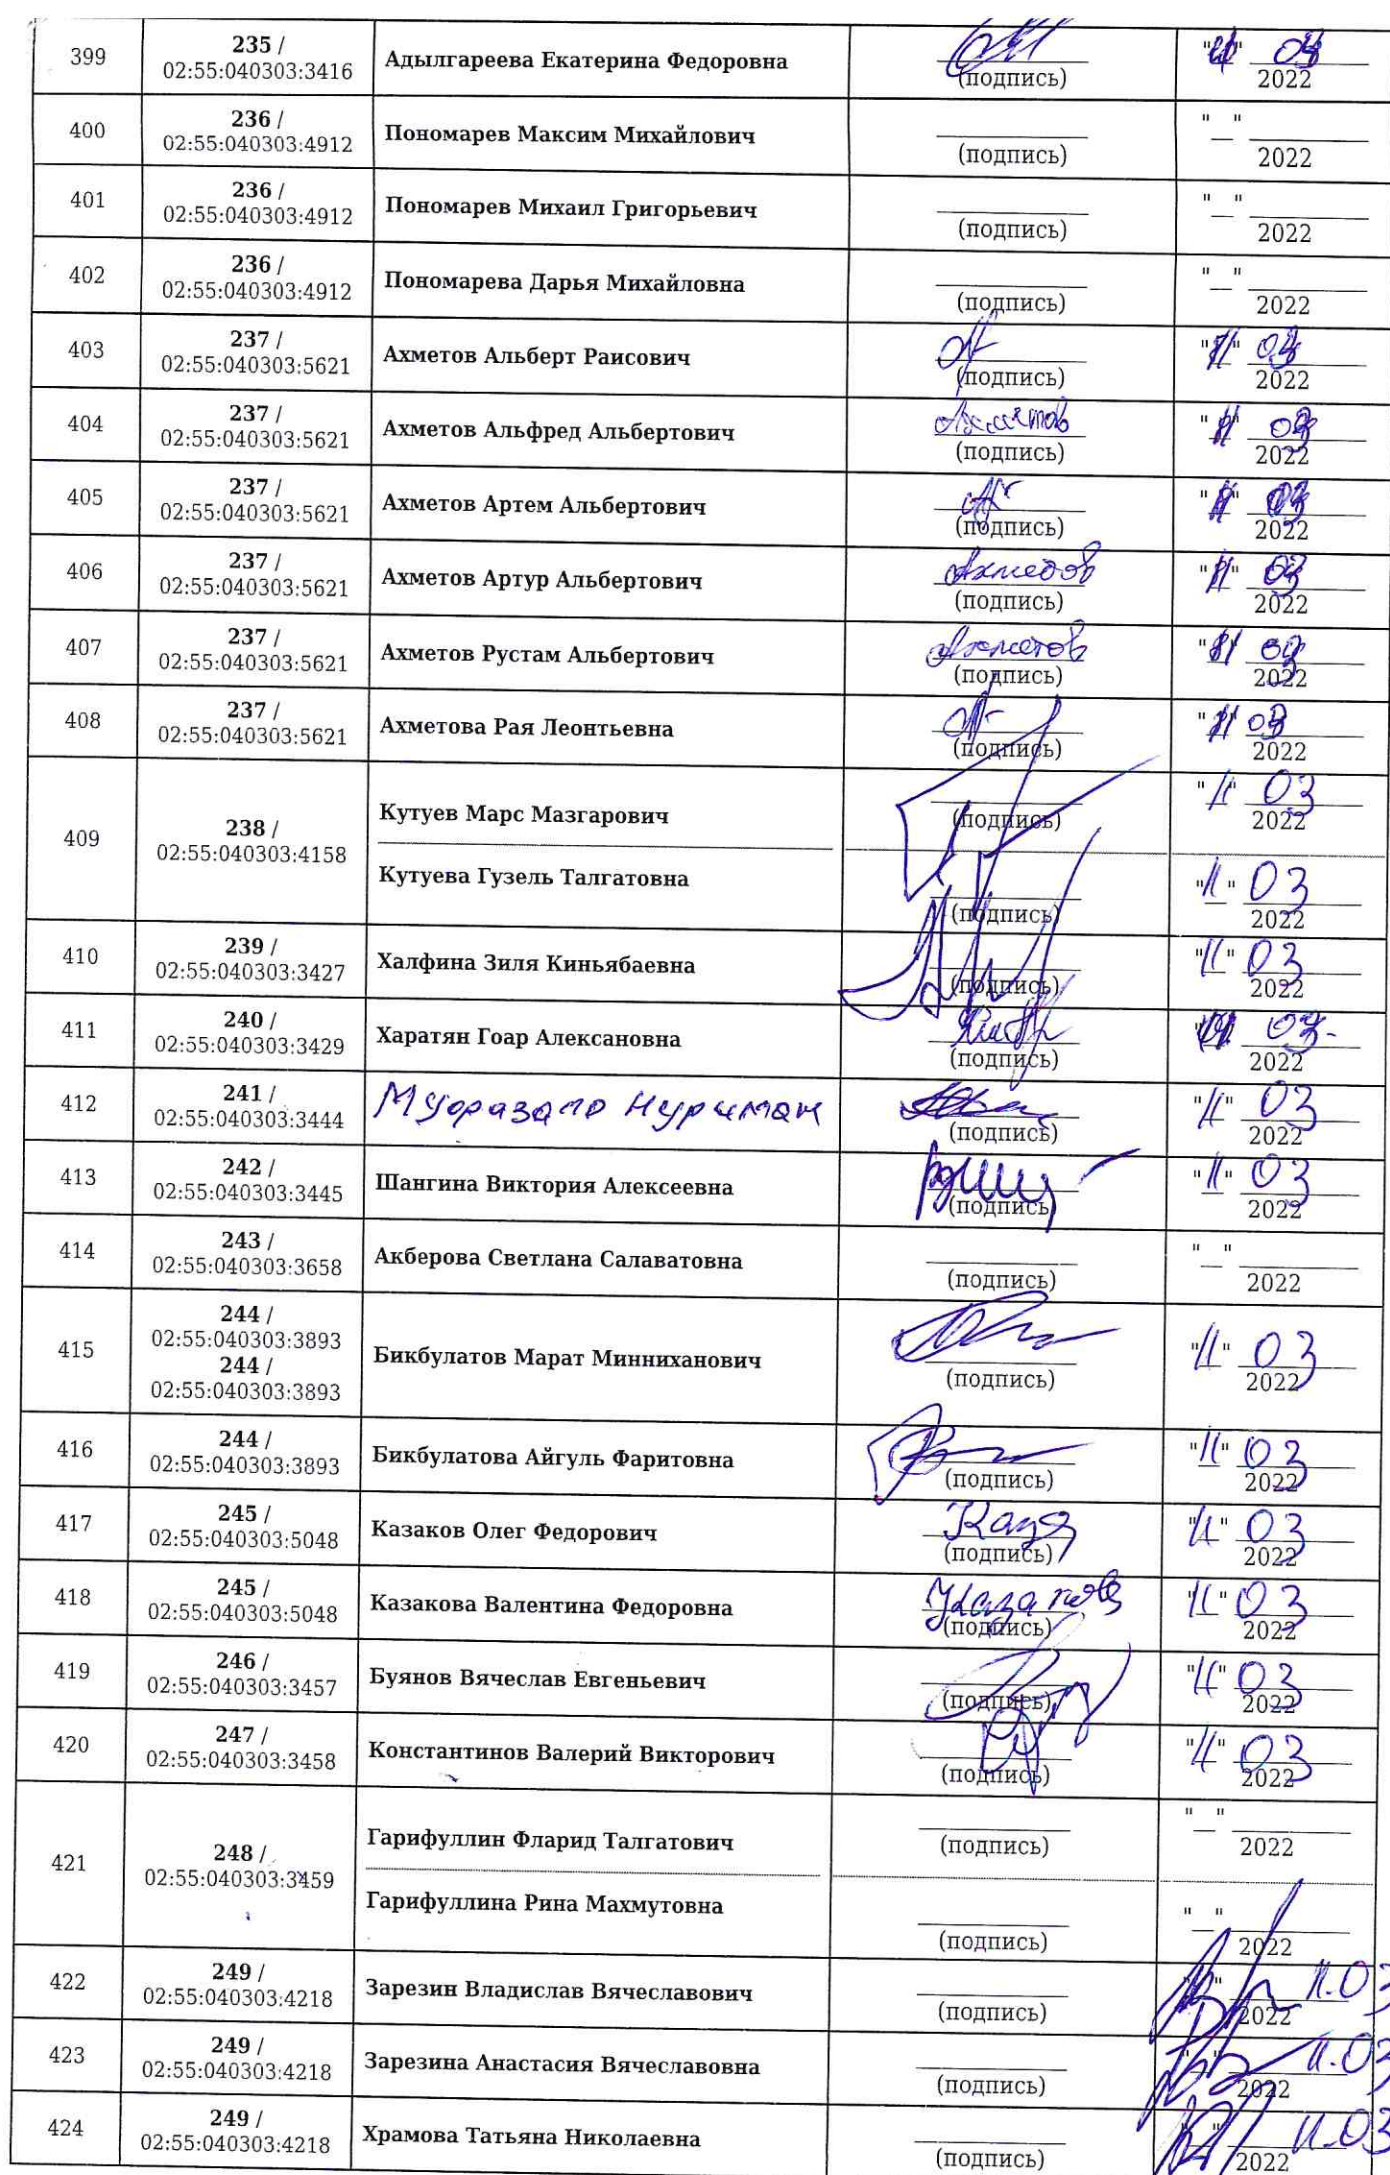 399
235 /
02:55:040303:3416
Адылгареева Екатерина Федоровна
(подпись)
" "
2022
400
236 /
02:55:040303:4912
Пономарев Максим Михайлович
(подпись)
"__"
2022
401
236 /
02:55:040303:4912
Пономарев Михаил Григорьевич
(подпись)
"__"
2022
402
236 /
02:55:040303:4912
Пономарева Дарья Михайловна
(подпись)
"__"
2022
403
237 /
02:55:040303:5621
Ахметов Альберт Раисович
(подпись)
2022
404
237 /
02:55:040303:5621
Ахметов Альфред Альбертович
Ахметов
(подпись)
2022
405
237 /
02:55:040303:5621
Ахметов Артем Альбертович
(подпись)
2022
406
237 /
02:55:040303:5621
Ахметов Артур Альбертович
(подпись)
2022
407
237 /
02:55:040303:5621
Ахметов Рустам Альбертович
Ахметов
(подпись)
2022
408
237 /
02:55:040303:5621
Ахметова Рая Леонтьевна
(подпись)
2022
409
238 /
02:55:040303:4158
Кутуев Марс Мазгарович
(подпись)
"11" 03
2022
Кутуева Гузель Талгатовна
(подпись)
"11" 03
2022
410
239 /
02:55:040303:3427
Халфина Зиля Киньябаевна
(подпись)
"11" 03
2022
411
240 /
02:55:040303:3429
Харатян Гоар Алексановна
(подпись)
2022
412
241 /
02:55:040303:3444
Нуриман
(подпись)
"11" 03
2022
413
242 /
02:55:040303:3445
Шангина Виктория Алексеевна
(подпись)
"11" 03
2022
414
243 /
02:55:040303:3658
Акберова Светлана Салаватовна
(подпись)
"__"
2022
415
244 /
02:55:040303:3893
244 /
02:55:040303:3893
Бикбулатов Марат Минниханович
(подпись)
"11" 03
2022
416
244 /
02:55:040303:3893
Бикбулатова Айгуль Фаритовна
(подпись)
"11" 03
2022
417
245 /
02:55:040303:5048
Казаков Олег Федорович
(подпись)
"11" 03
2022
418
245 /
02:55:040303:5048
Казакова Валентина Федоровна
(подпись)
"11" 03
2022
419
246 /
02:55:040303:3457
Буянов Вячеслав Евгеньевич
(подпись)
"11" 03
2022
420
247 /
02:55:040303:3458
Константинов Валерий Викторович
(подпись)
"11" 03
2022
421
248 /
02:55:040303:3459
Гарифуллин Фларид Талгатович
(подпись)
"__"
2022
Гарифуллина Рина Махмутовна
(подпись)
"__"
2022
422
249 /
02:55:040303:4218
Зарезин Владислав Вячеславович
(подпись)
11.03
2022
423
249 /
02:55:040303:4218
Зарезина Анастасия Вячеславовна
(подпись)
11.03
2022
424
249 /
02:55:040303:4218
Храмова Татьяна Николаевна
(подпись)
11.03
2022